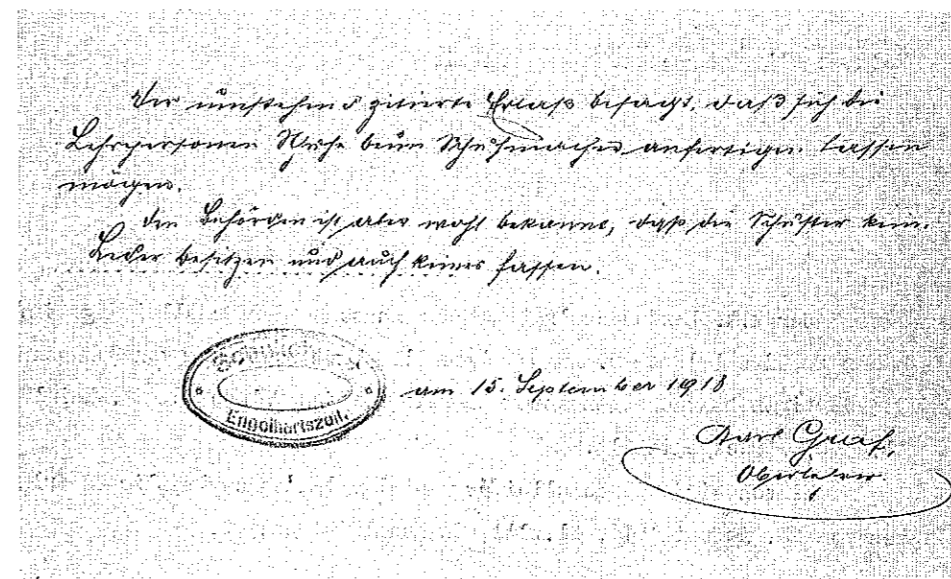 Der umstehend zitierte Erlaß besagt, daß sich die
Lehrpersonen Schuhe beim Schuhmacher anfertigen lassen
mögen.
Den Behörden ist aber wohl bekannt, daß die Schuster kein
Leder besitzen und auch keines fassen.
Engelhartszell.
am 15. September 1918
Karl Graf,
Oberlehrer.